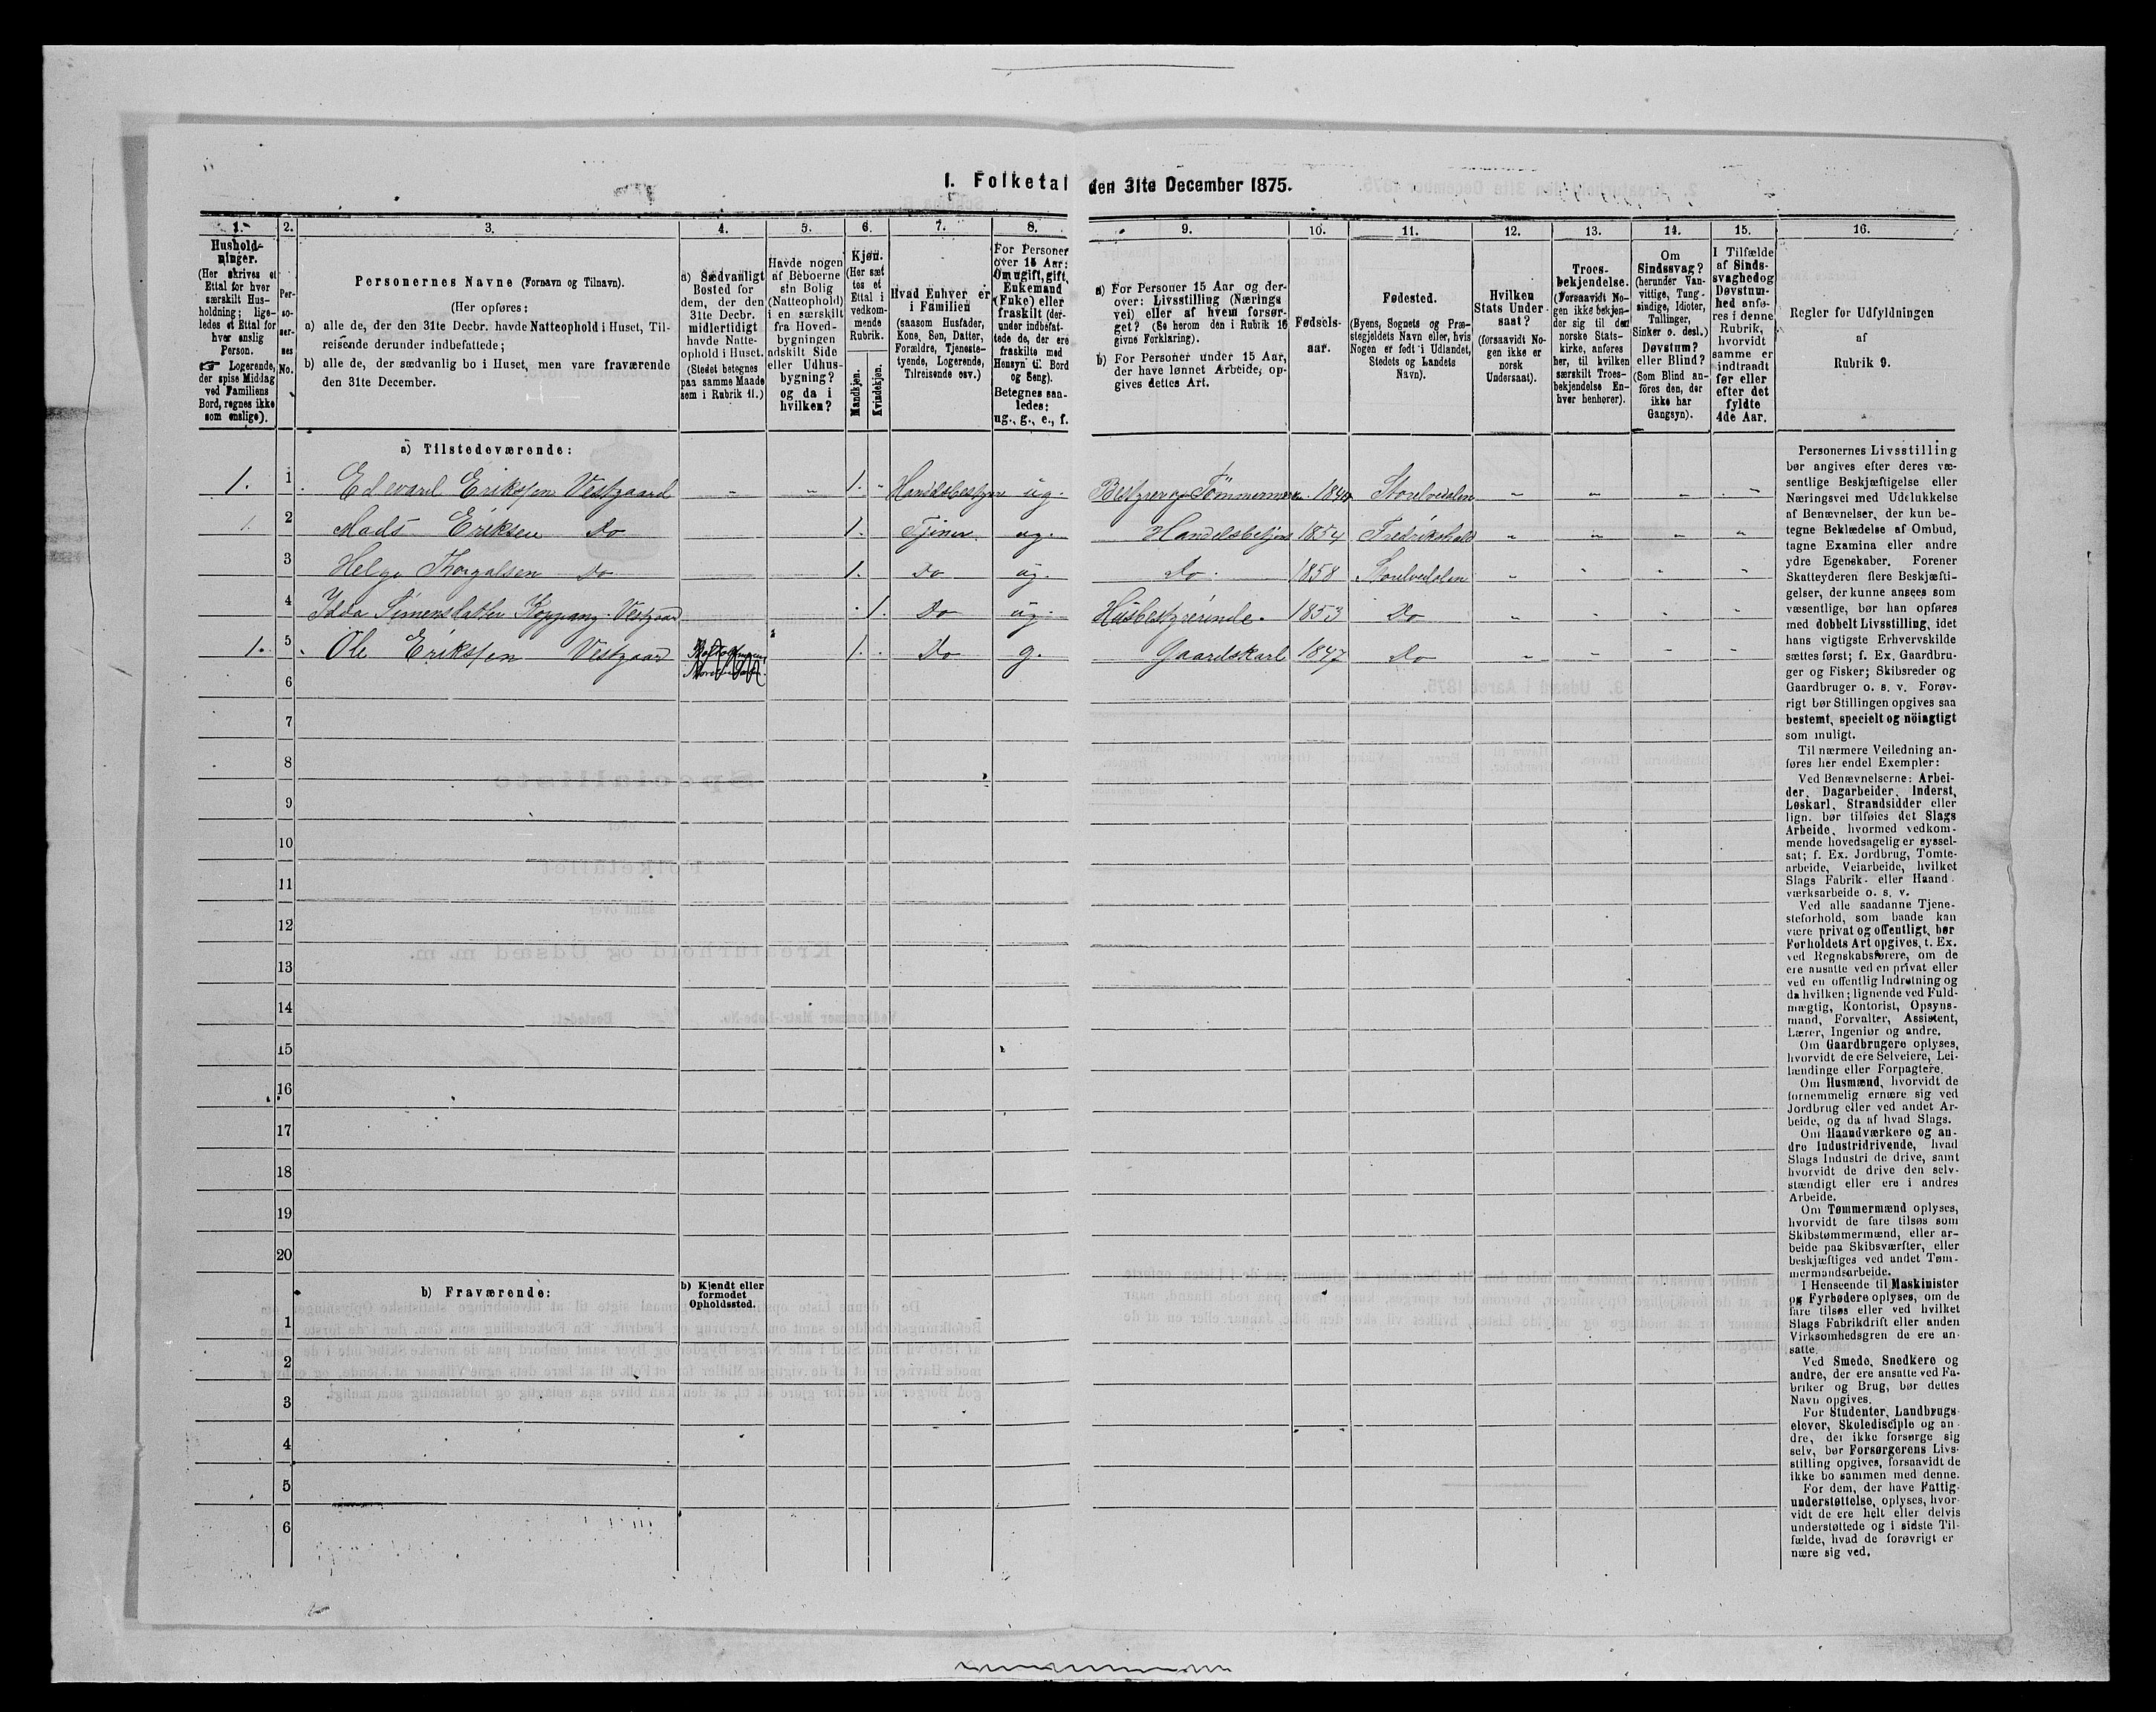 I. Folketal den 31te December 1875.
1. 2. 3. 4. 5. 6. 7. 8. 9. 10. 11. 12. 13. 14. 15. 16.
Hushold-
ninger.
(Her skrives et
Ettal for hver
særskilt Hus-
holdning; lige-
ledes et Ettal for
hver enslig
Person.
☞ Logerende,
der spise Middag
ved Familiens
Bord, regnes ikke
som enslige).
Per-
so-
ner-
nes
No.
Personernes Navne (Fornavn og Tilnavn).
(Her opføres:
a) alle de, der den 31te Decbr. havde Natteophold i Huset, Til-
reisende derunder indbefattede;
b) alle de, der sædvanlig bo i Huset, men vare fraværende
den 31te December.
a) Sædvanligt
Bosted for
dem, der den
31te Decbr.
midlertidigt
havde Natte-
ophold i Huset.
(Stedet betegnes
paa samme Maade
som i Rubrik 11.)
Havde nogen
af Beboerne
sin Bolig
(Natteophold)
i en særskilt
fra Hoved-
bygningen
adskilt Side
eller Udhus-
bygning?
og da i
hvilken?
Kjøn.
(Her sæt
tes et
Ettal i
vedkom-
mende
Rubrik.
Mandkjøn.
Kvindekjøn.
Hvad Enhver er
i Familien
(saasom Husfader,
Kone, Søn, Datter,
Forældre, Tjeneste-
tyende, Logerende,
Tilreisende osv.)
For Personer
over 15 Aar:
Om ugift, gift,
Enkemand
(Enke) eller
fraskilt (der-
under indbefat-
tede de, der ere
fraskilte med
Hensyn til Bord
og Seng).
Betegnes saa-
ledes:
ug., g., e., f.
a) For Personer 15 Aar og der-
over: Livsstilling (Nærings
vei) eller af hvem forsør-
get? (Se herom den i Rubrik 16
givne Forklaring).
b) For Personer under 15 Aar,
der have lønnet Arbeide, op-
gives dettes Art.
Fødsels-
aar.
Fødested.
(Byens, Sognets og Præ-
stegjeldets Navn eller, hvis
Nogen er født i Udlandet,
Stedets og Landets
Navn).
Hvilken
Stats Under
saat?
(forsaavidt No-
gen ikke er
norsk
Undersaat).
Troes-
bekjendelse.
(Forsaavidt No-
gen ikke bekjen-
der sig til den
norske Stats-
kirke, anføres
her, til hvilken
særskilt Troes-
bekjendelse En-
hver henhører).
Om
Sindssvag?
(herunder Van-
vittige, Tung-
sindige, Idioter,
Tullinger,
Sinker o. desl.)
Døvstum?
eller Blind?
(Som Blind an-
föres den, der
ikke har
Gangsyn).
I Tilfælde
af Sinds-
svaghed og
Døvstum-
hed anfø-
res i denne
Rubrik,
hvorvidt
samme er
indtraadt
før eller
efter det
fyldte
4de Aar.
Regler for Udfyldningen
af
Rubrik 9.
a) Tilstedeværende:
1. 1 Edevard Eriksen Vestgaard 1. ug. 1849 Storelvedalen
1. 2 Mads Eriksen Do 1. Tjener ug. Handelsbetjent 1854 Fredrikshald
3 Helge Do 1. Do ug. Do. 1858 Storelvedalen
4 Idda Simensdatter Koppang Vestgaard 1. Do ug. Husbestyrerinde. 1853 Do
1. 5 Ole Eriksen Vestgaard 1. Do g. Gaardskarl 1847 Do
6
7
8
9
10
11
12
13
14
15
16
17
18
19
20
b) Fraværende:
b) Kjendt eller
formodet
Opholdssted.
1
2
3
4
5
6
Personernes Livsstilling
bør angives efter deres væ-
sentlige Beskjæftigelse eller
Næringsvei med Udelukkelse
af Benævnelser, der kun be-
tegne Beklædelse af Ombud,
tagne Examina eller andre
ydre Egenskaber. Forener
Skatteyderen flere Beskjæfti-
gelser, der kunne ansees som
væsentlige, bør han opføres
med dobbelt Livsstilling, idet
hans vigtigste Erhvervskilde
sættes først; f. Ex. Gaardbru-
ger og Fisker; Skibsreder og
Gaardbruger o. s. v. Forøv-
rigt bør Stillingen opgives saa
bestemt, specielt og nöiagtigt
som muligt.
Til nærmere Veiledning an-
føres her endel Exempler:
Ved Benævnelserne: Arbei-
der, Dagarbeider, Inderst,
Løskarl, Strandsidder eller
lign. bør tilføies det Slags
Arbeide, hvormed vedkom-
mende hovedsagelig er syssel-
sat; f. Ex. Jordbrug, Tomte-
arbeide, Veiarbeide, hvilket
Slags Fabrik- eller Haand-
værksarbeide o. s. v.
Ved alle saadanne Tjene-
steforhold, som baade kan
være privat og offentligt, bør
Forholdets Art opgives, t. Ex.
ved Regnskabsførere, om de
ere ansatte ved en privat eller
ved en offentlig Indretning og
da hvilken; lignende ved Fuld-
mægtig, Kontorist, Opsyns-
mand, Forvalter, Assistent,
Lærer, Ingeniør og andre.
Om Gaardbrugere oplyses,
hvorvidt de ere Selveiere, Lei-
lændinge eller Forpagtere.
Om Husmænd, hvorvidt de
fornemmelig ernære sig ved
Jordbrug eller ved andet Ar-
beide, og da af hvad Slags.
Om Haandværkere og an-
dre Industridrivende, hvad
Slags Industri de drive, samt
hvorvidt de drive den selv-
stændigt eller ere i andres
Arbeide.
Om Tømmermænd oplyses,
hvorvidt de fare tilsøs som
Skibstømmermænd, eller ar-
beide paa Skibsværfter, eller
beskjæftiges ved andet Tøm-
mermandsarbeide.
I Henseende til Maskinister
og Fyrbødere oplyses, om de
fare tilsøs eller ved hvilket
Slags Fabrikdrift eller anden
Virksomhedsgren de ere an-
satte.
Ved Smede, Snedkere og
andre, der ere ansatte ved Fa-
briker og Brug, bør dettes
Navn opgives.
For Studenter, Landbrugs-
elever, Skoledisciple og an-
dre, der ikke forsørge sig
selv, bør Forsørgerens Livs-
stilling opgives, forsaavidt de
ikke bo sammen med denne.
For dem, der have Fattig-
understøttelse, oplyses, hvor-
vidt de ere helt eller delvis
understøttede og i sidste Til-
fælde, hvad de forøvrigt er-
nære sig ved.